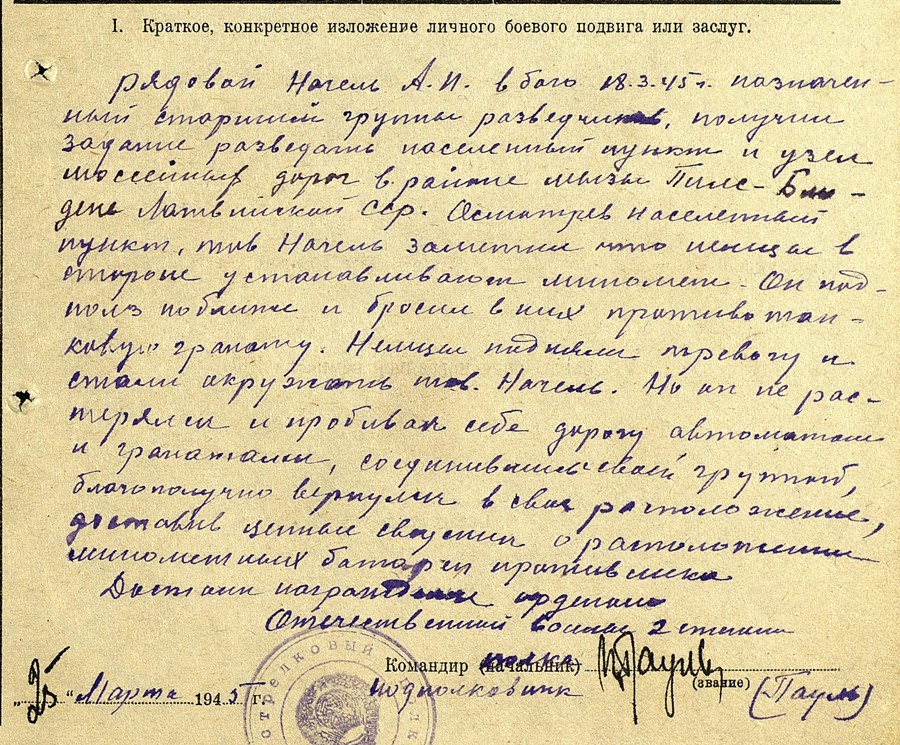 I. Краткое, конкретное изложение личного боевого подвига или заслуг.
рядовой Начель А.И. в бою 18.3.45г. назначен-
ный старшим группы разведчиков, получил
задание разведать населенный пункт и узел
шоссейных дорог в районе мызы Пилс-Бли-
дене Латвийской ССР. Осмотрев населенный
пункт, тов Начель заметил что немцы в
стороне устанавливают миномет. Он под-
полз поближе и бросил в них противотан-
ковую гранату. Немцы подняли тревогу и
стали окружать тов. Начель. Но он не рас-
терялся и пробивая себе дорогу автоматом
и гранатами, соединившись своей группой,
благополучно вернулся в свое расположение,
доставив ценные сведения о расположении
минометных батарей противника
Достоин награждения орденом
Отечественной войны 2 степени
Командир (начальник) полка
(звание)
"25" Марта 1945 г. Подполковник (Пауль)
стрелковый полк